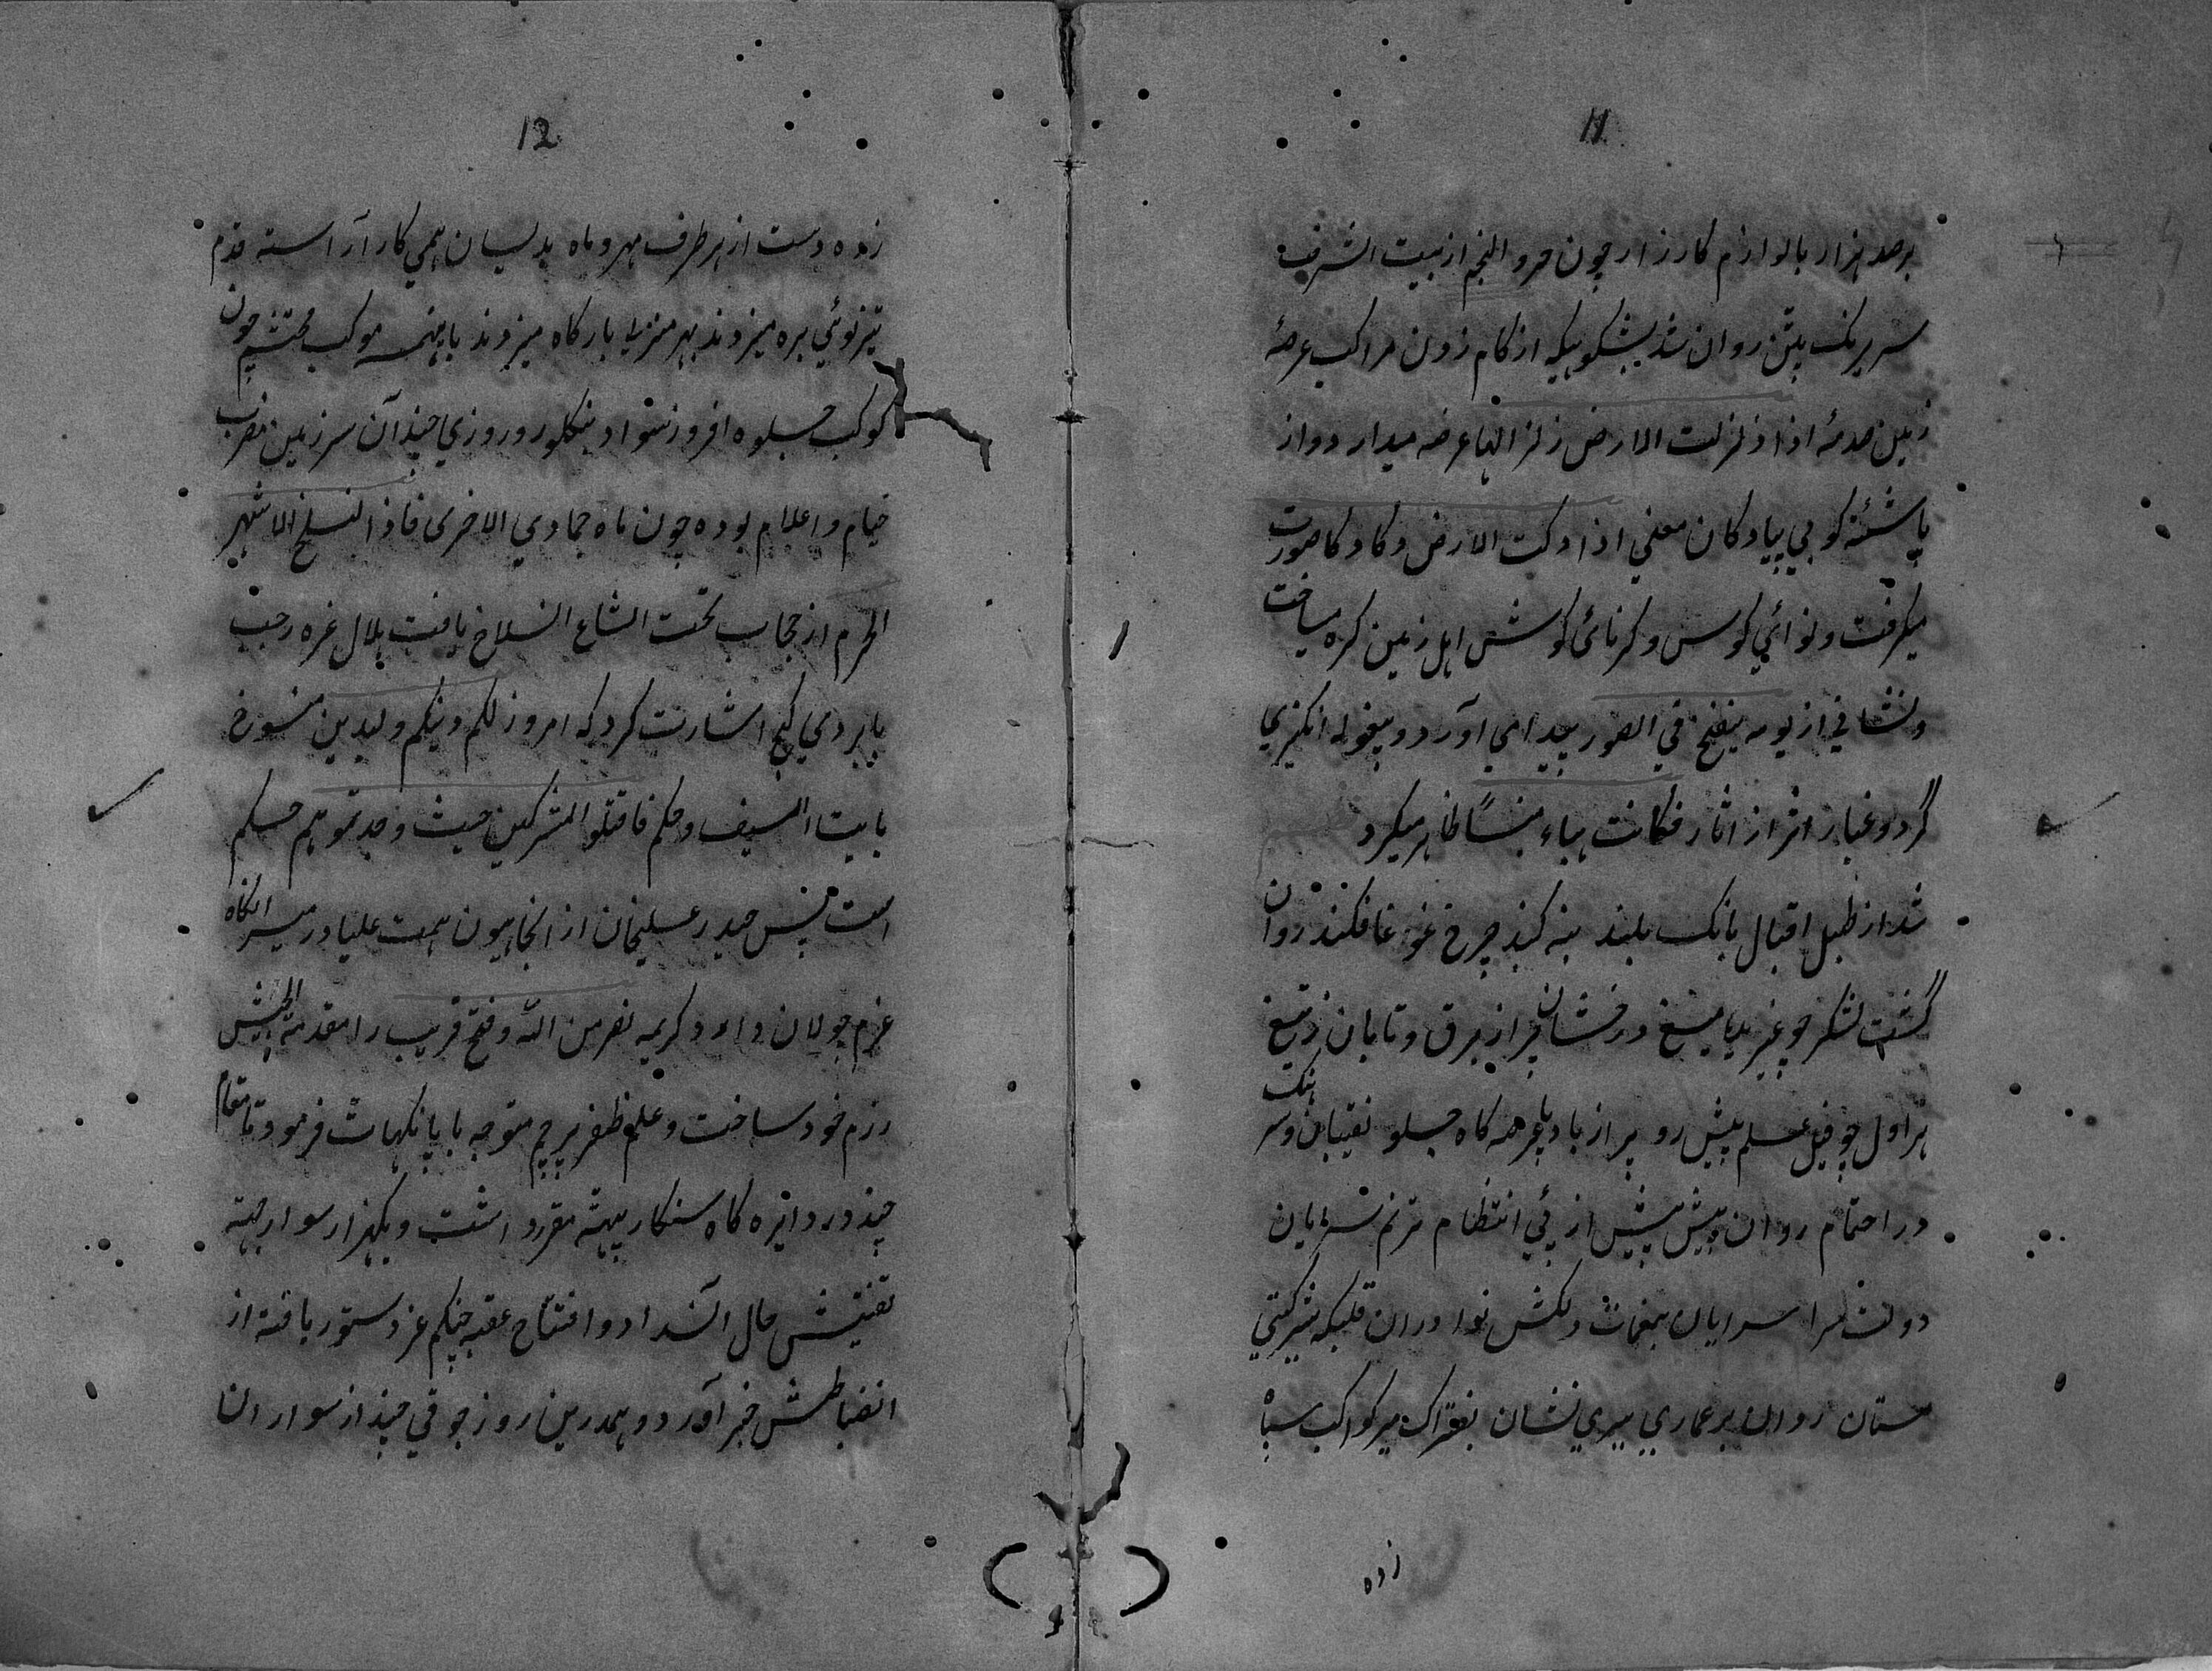 11
بر صد هزار بالوازم کارزار چون مرو النجم از بیت الشرف
سریرنک پتن روان شد بشکوهیکه از کام زدن مراکب عرصهٔ
زمین صدمهٔ اذا زلزلت الارض زلزالها عرضه میدارد و از
پاشنه کوبی پیادکان معنی اذا دکت الارض دکا دکا صورت
میکرفت و نوائي کوس و کرنائی کوش اهل زمین کره میساخت
و نشانی از یوم ینفخ في الصور پیدا می آورد و بیغوله انکیزي
گرد و غبار اثر از اثار فکانت هباء منبثاً ظاهر میکرد
شد از طبل اقبال بانک بلند بنه کنبد چرخ غوغا فکند روان
گشت لشکر چو غرنده میغ درخشان تر از برق و تابان ز تیغ
هراول چو فیل علم پیش رو پر از باد پا عرصه کاه جلو نقیبان و سرهنک
در احتمام روان پیش پیش از پي انتظام ترنم سرایان
دولت سرا سرایان بنغمات دلکش نوا دران قلبکه شیر کیتي
ستان روان بر عماري میري نشان بفتراک میر کواکب سپاه
زده
12
زده دست از هر طرف مهر و ماه بدینسان همي کار آراسته قدم
تیز نوئي بره میزدند بهر منزلے بارکاه میزدند باینهمه موکب محتشم چون
کوکب جلوه افروز سواد بنکلور و روزي چند آن سرزمین مضرب
خیام و اعلام بوده چون ماه جمادي الاخری فاذا انسلخ الاشهر
الحرم از حجاب تحت الشاع انسلاخ یافت هلال غره رجب
بابروي کج اشارت کرد که امروز لکم دینکم ولیدین منسوخ
بایت السیف و حکم فاقتلو المشرکین حیث وجدتموهم مسلم
است پس حیدر علیخان از انجا میون همت علیا در میدانکاه
عزم جولان داد و کریمه نصر من الله و فتح قریب را مقدمة الجیش
رزم خود ساخت و علم ظفر پرچم متوجه با پایانکهات فرمود تا مقام
چند در دایره کاه سنکارپیته مقرر داشت و یکهزار سوار جهته
تفتیش حال انسداد و افتتاح عقبه چنکم عز دستور یافته از
انضباطش خبر آورد و همدرین روز جوقي چند از سواران